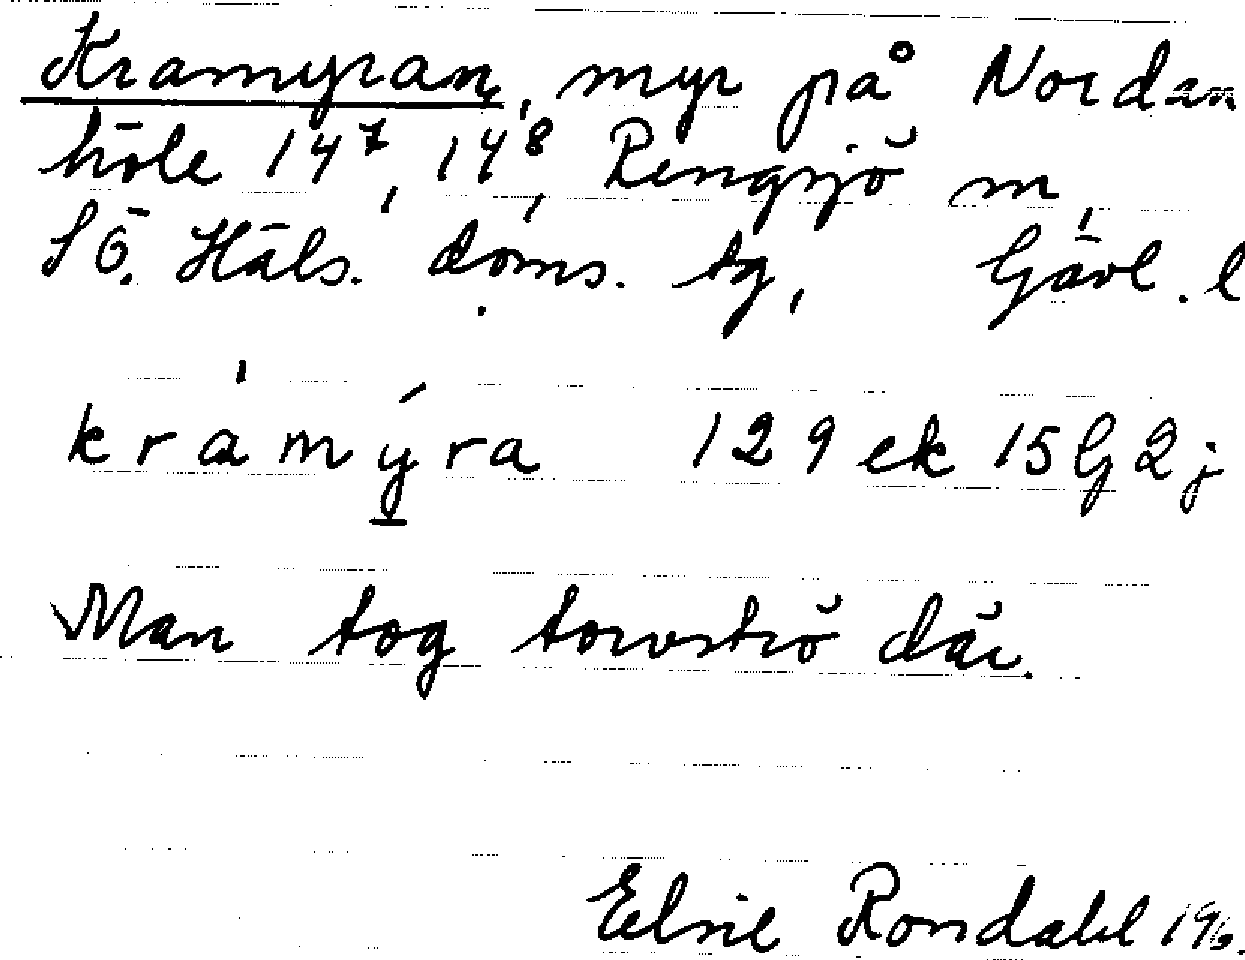 Kramyran, myr på Nordan
höle 14⁷, 14⁸, Rengsjö sn,
SÖ. Häls. doms. tg, Gävl. l
kramy̱ra 129 ek 15G2j
Man tog torvströ där.
Elsie Rondahl 196.